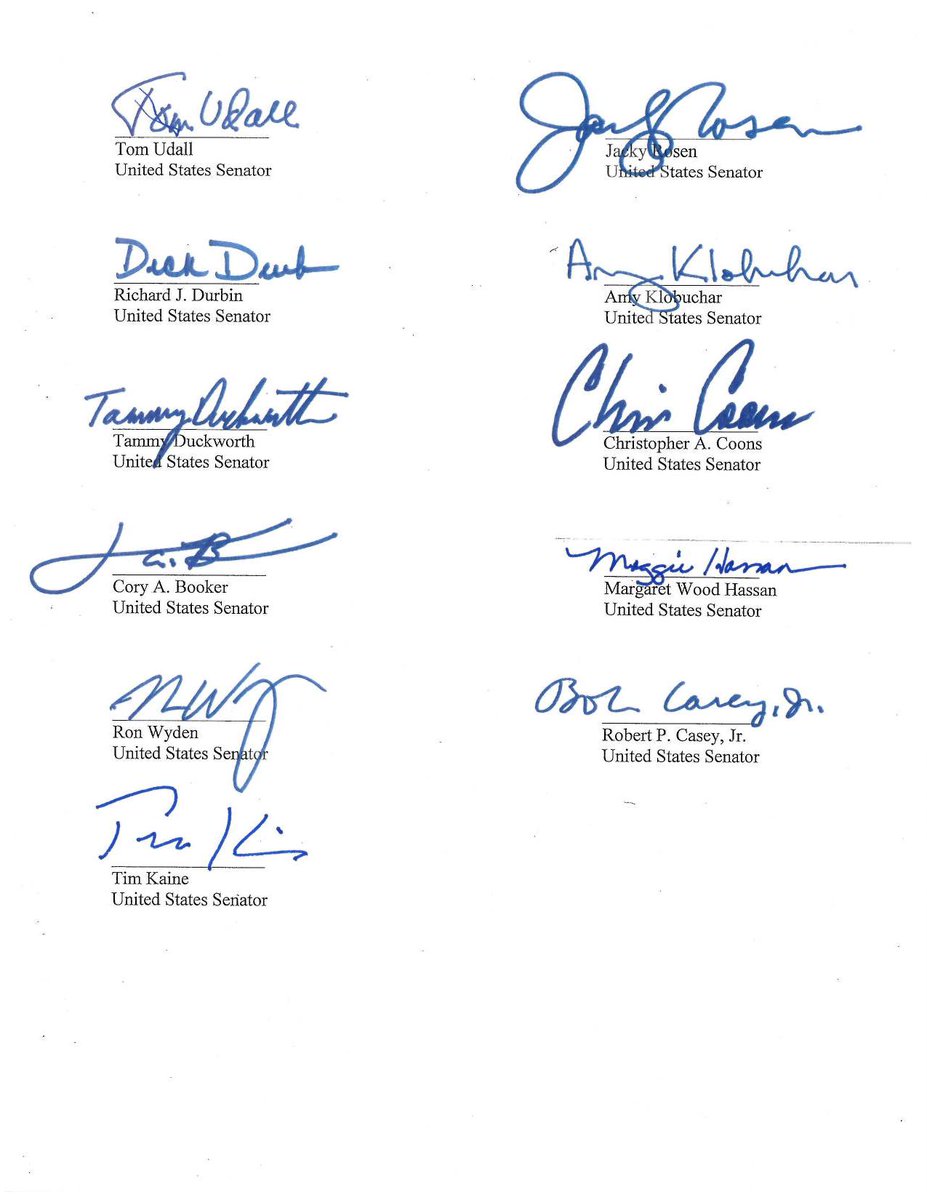 Tom Udall
Tom Udall
United States Senator
Jacky Rosen
Jacky Rosen
United States Senator
Dick Durbin
Richard J. Durbin
United States Senator
Amy Klobuchar
Amy Klobuchar
United States Senator
Tammy Duckworth
Tammy Duckworth
United States Senator
Chris Coons
Christopher A. Coons
United States Senator
Cory A. Booker
United States Senator
Maggie Hassan
Margaret Wood Hassan
United States Senator
Ron Wyden
United States Senator
Bob Casey, Jr.
Robert P. Casey, Jr.
United States Senator
Tim Kaine
Tim Kaine
United States Senator